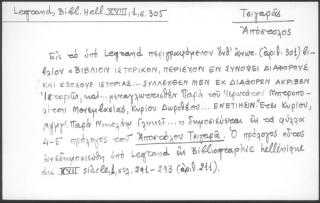 Legrand, Bibl. Hell. XVIII, 1, σ. 305
Τσιγαρᾶς
Ἀπόστολος
Εἰς τὸ ὑπὸ Legrand περιγραφόμενον ὑπ' ἀριθμ. (ἀριθ. 301) βι-
βλίον «ΒΙΒΛΙΟΝ ΙΣΤΟΡΙΚΟΝ, ΠΕΡΙΕΧΟΝ ΕΝ ΣΥΝΟΨΕΙ ΔΙΑΦΟΡΟΥΣ
ΚΑΙ ΕΞΟΧΟΥΣ ΙΣΤΟΡΙΑΣ... ΣΥΛΛΕΧΘΕΝ ΜΕΝ ΕΚ ΔΙΑΦΟΡΩΝ ΑΚΡΙΒΩΝ
Ἱστοριῶν, καὶ... Παρὰ τοῦ Ἱερωτάτου Μητροπο-
λίτου Μονεμβασίας, Κυρίου Δωροθέου... ΕΝΕΤΙΗΣΙΝ. Ἔτει Κυρίου,
Παρὰ Νικολάῳ Γλυκεῖ...» δημοσιεύεται εἰς τὰ φύλλα
4-5 πρόλογος τοῦ Ἀποστόλου Τσιγαρᾶ. Ὁ πρόλογος οὗτος
ἀνεδημοσιεύθη ὑπὸ Legrand ἐν Bibliographie hellénique
du XVII siècle, I, σελ. 291-293 (ἀριθ. 211).